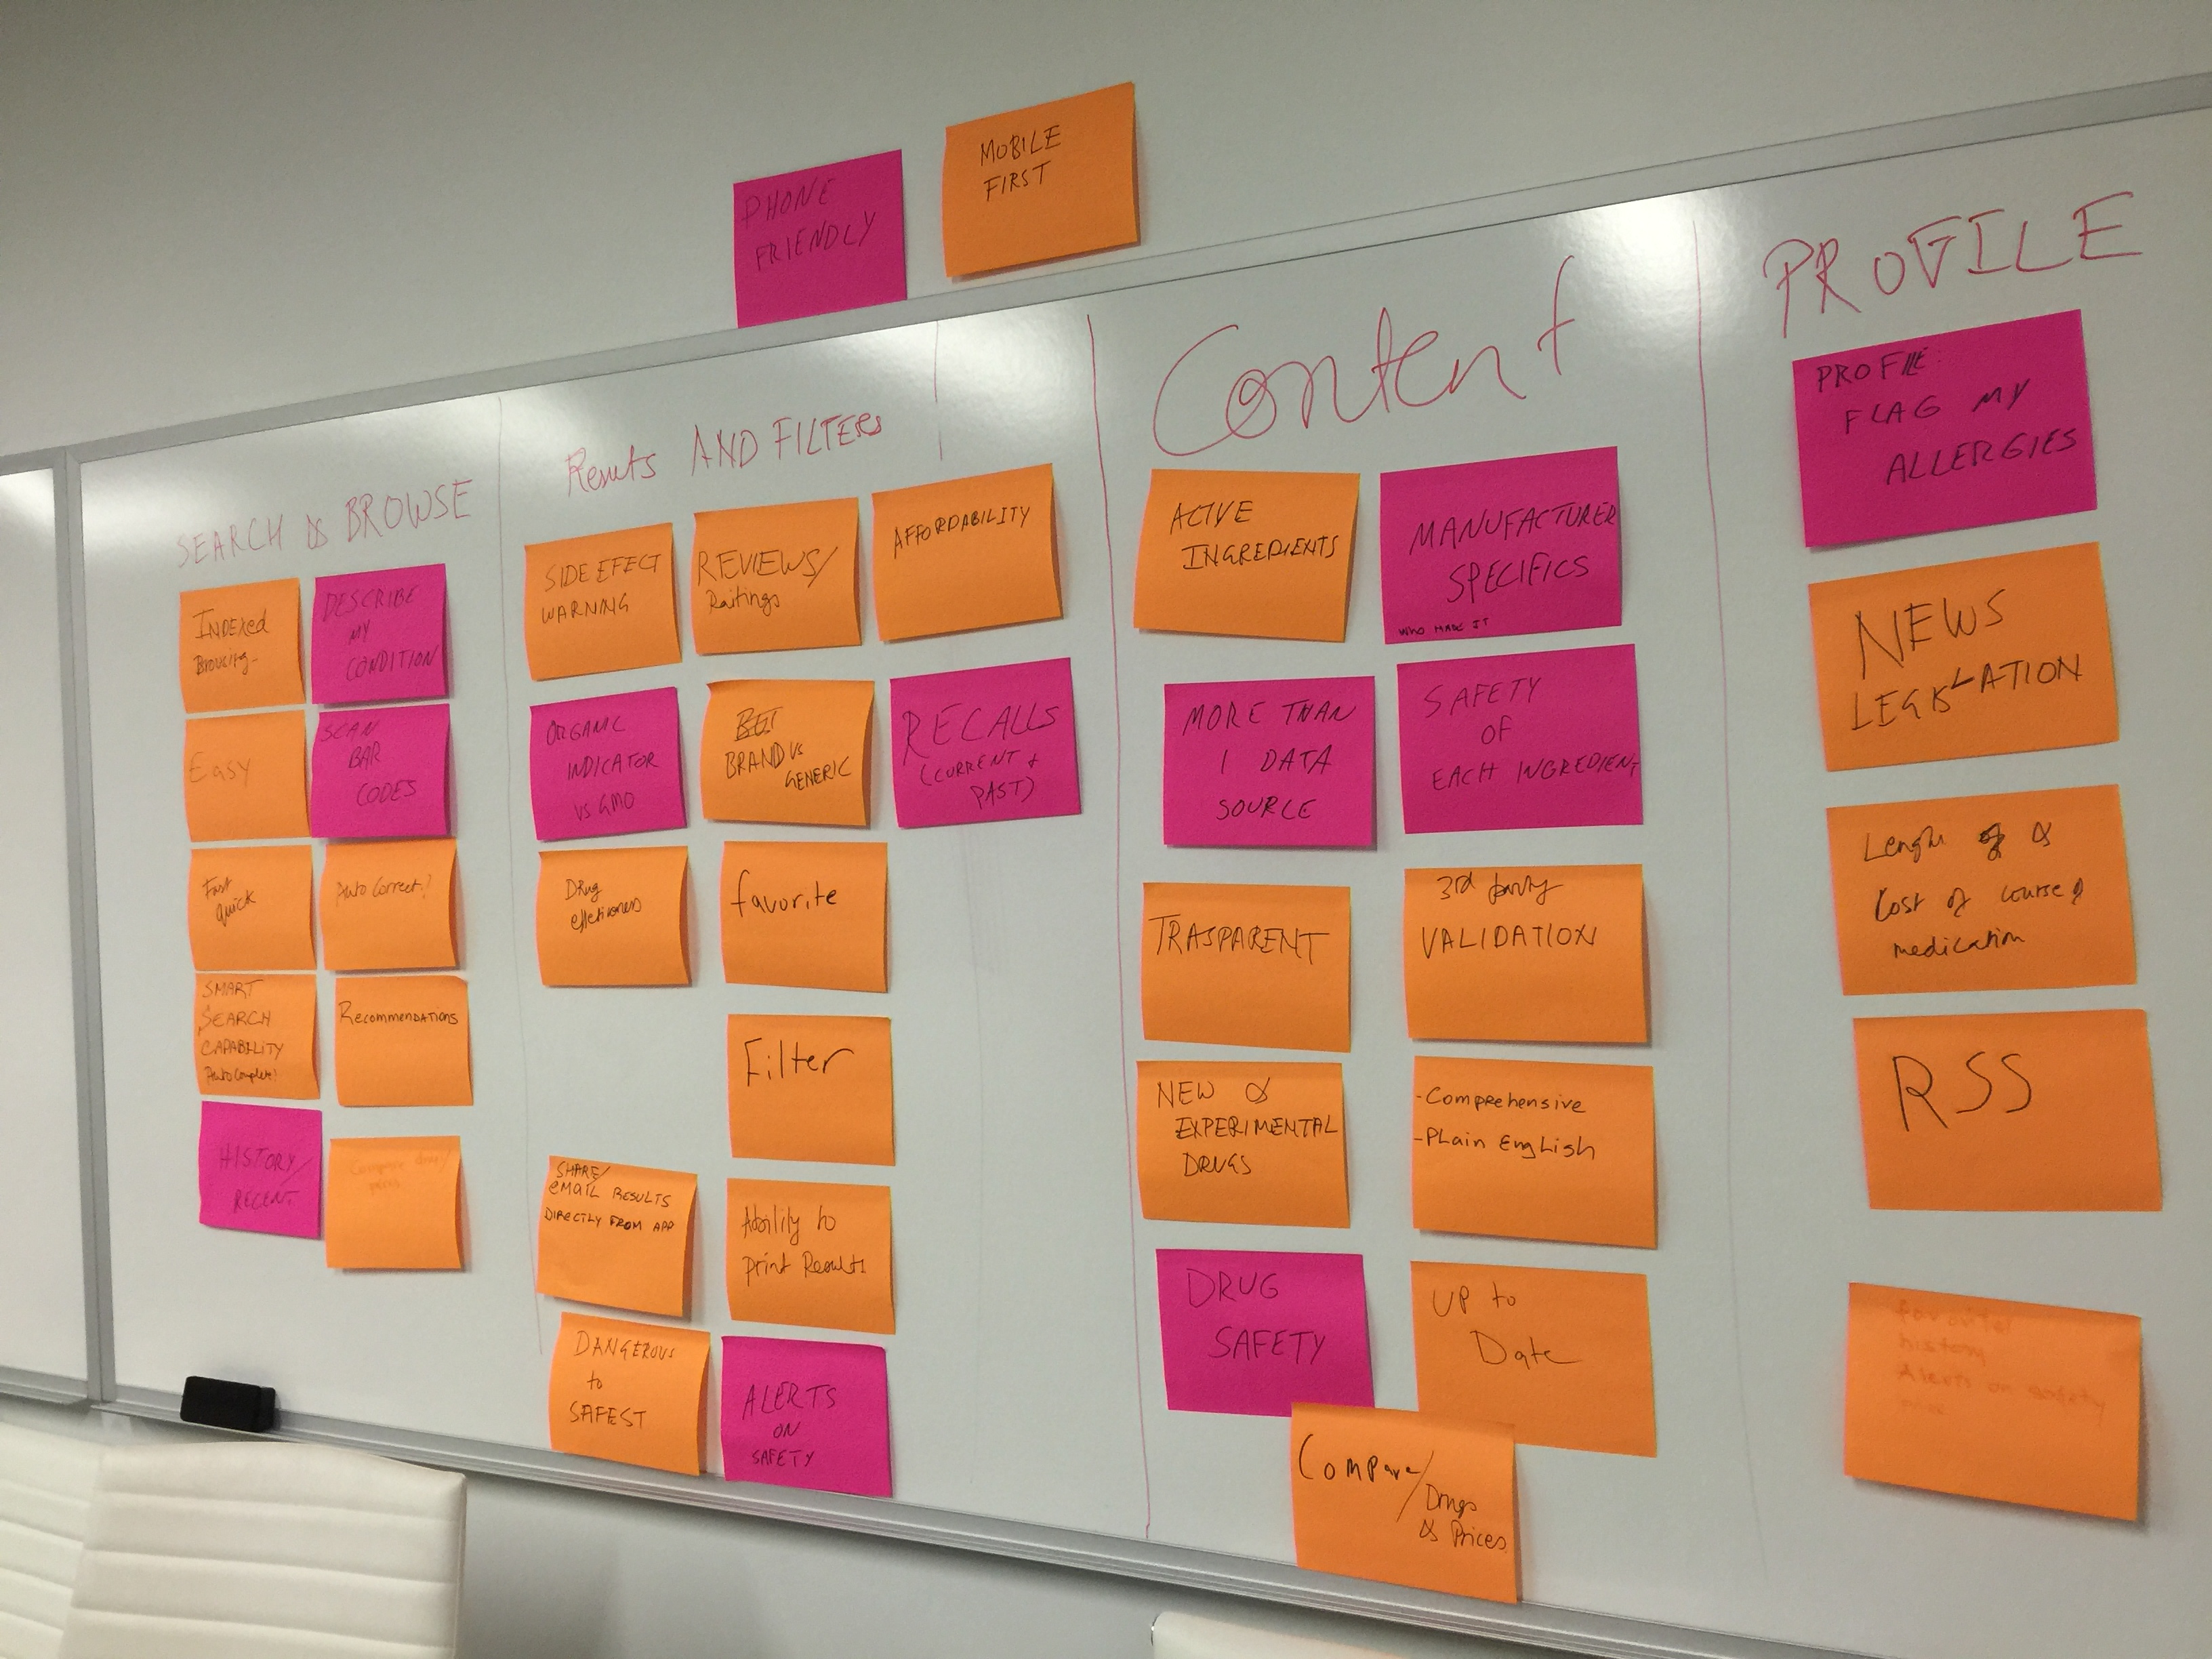 PHONE
FRIENDLY
MOBILE
FIRST
SEARCH & BROWSE
INDEXed
Broucing-
DESCRIBE
MY
CONDITION
Easy
SCAN
BAR
CODES
Fast
quick
Auto Correct!
SMART
SEARCH
CAPABILITY
AutoComplete!
RecommenDATIONS
HISTORY/
RECENT
Compare drug/
Results AND FILTERS
SIDE EFFECT
WARNING
REVIEWS/
Raitings
AFFORDABILITY
ORGANIC
INDICATOR
VS GMO
BRAND VS
GENERIC
RECALLS
(CURRENT +
PAST)
DRug
effectiveness
favorite
Filter
SHARE/
eMAIL RESULTS
DIRECTLY FROM APP
Ability to
print Results
DANGEROUS
to
SAFEST
ALERTS
ON
SAFETY
Content
ACTIVE
INGREDIENTS
MANUFACTURER
SPECIFICS
WHO MADE IT
MORE THAN
1 DATA
SOURCE
SAFETY
OF
EACH INGREDIENT
TRASPARENT
3rd party
VALIDATION
NEW &
EXPERIMENTAL
DRUGS
-Comprehensive
-PLain EngLish
DRUG
SAFETY
UP to
Date
Compare/
Drugs
& Prices
PROFILE
PROFILE:
FLAG MY
ALLERGIES
NEWS
LEGISLATION
Lenght of &
Cost of course of
medication
RSS
favorites
history
Alerts on safety